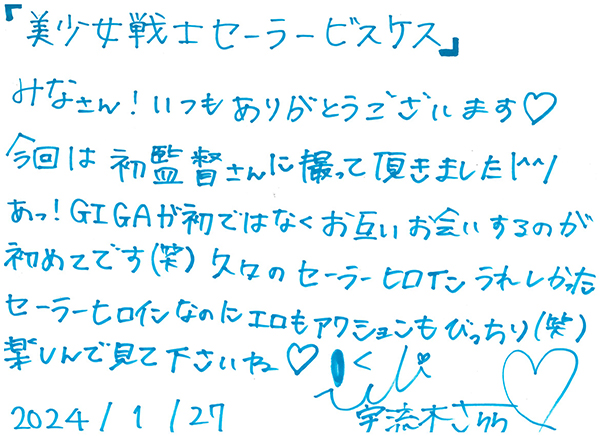 『美少女戦士セーラービスケス』
みなさん！いつもありがとうございます♡
今回は初監督さんに撮って頂きました(^^)
あっ！GIGAが初ではなくお互いお会いするのが
初めてです(笑)久々のセーラーヒロインうれしかった
セーラーヒロインなのにエロもアクションもびっちり(笑)
楽しんで見て下さいね♡
宇流木さらら
2024/1/27